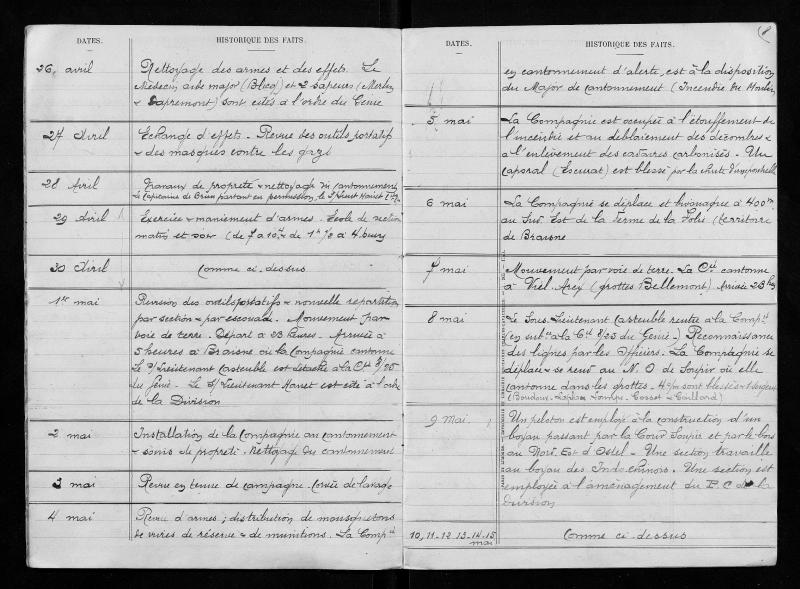 DATES. HISTORIQUE DES FAITS.
26 avril Nettoyage des armes et des effets. Le
Médecin aide major (Blicq) et 2 sapeurs (Merlin
+ Sapremont) sont cités à l'ordre du Génie
27 Avril Echange d'effets - Revue des outils portatifs
+ des masques contre les gaz
28 Avril Travaux de propreté + nettoyage du cantonnement
Le Capitaine de Brun partant en permission, le S/Lieut Harret
29 Avril Exercice + maniement d'armes. Ecole de section
matin et soir (de 7 à 10h + de 1h 1/2 à 4 heures
30 Avril Comme ci-dessus
1er mai Revision des outils portatifs + nouvelle répartition
par section + par escouade. Mouvement par
voie de terre. Départ à 23 heures. Arrivée à
5 heures à Braisne où la Compagnie cantonne
Le S/Lieutenant Casteuble est détaché à la Cie 8/25
du Génie - Le S/Lieutenant Harret est cité à l'ordre
de la Division
2 mai Installation de la Compagnie au cantonnement
+ soins de propreté. Nettoyage du cantonnement
3 mai Revue en tenue de campagne. Corvée de lavage
4 mai Revue d'armes ; distribution de mousquetons
de vivres de réserve + de munitions. La Compie
8
DATES. HISTORIQUE DES FAITS.
en cantonnement d'alerte, est à la disposition
du Major de cantonnement (Incendie du Moulin
5 mai La Compagnie est occupée à l'étouffement de
l'incendie et au déblaiement des décombres +
à l'enlèvement des cadavres carbonisés - Un
caporal (Escurat) est blessé par la chute d'une poutrelle
6 mai La Compagnie se déplace et bivouaque à 400m
au Sud Est de la Ferme de la Folie (territoire
de Braisne
7 mai Mouvement par voie de terre. La Cie cantonne
à Viel Arcy (grottes Bellemont) Arrivée 23h
8 mai Le Sous-Lieutenant Casteuble rentre à la Compie
(en subce à la Cie 8/25 du Génie -) Reconnaissance
des lignes par les Officiers. La Compagnie se
déplace + se rend au N. O de Soupir où elle
cantonne dans les grottes -
9 Mai. Un peloton est employé à la construction d'un
boyau passant par la Cour Soupir et par le bois
au Nord Est d'Ostel - Une section travaille
au boyau des Indochinois. Une section est
employée à l'aménagement du P.C de la
Division
10, 11 - 12 13 - 14 - 15 mai Comme ci-dessus